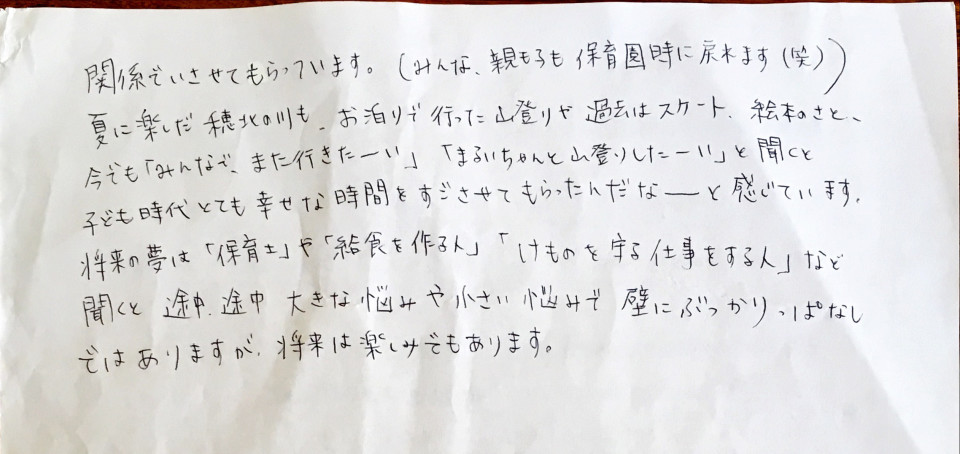 関係でいさせてもらっています。(みんな、親も子も保育園時に戻れます(笑))
夏に楽しだ穂北の川も、お泊りで行った山登りや過去はスケート、絵本のさと、
今でも「みんなで、また行きたーい」「まるいちゃんと山登りしたーい」と聞くと
子ども時代とても幸せな時間をすごさせてもらったんだなーと感じています。
将来の夢は「保育士」や「給食を作る人」「けものを守る仕事をする人」など
聞くと途中、途中大きな悩みや小さい悩みで壁にぶっかりっぱなし
ではありますが、将来は楽しみでもあります。